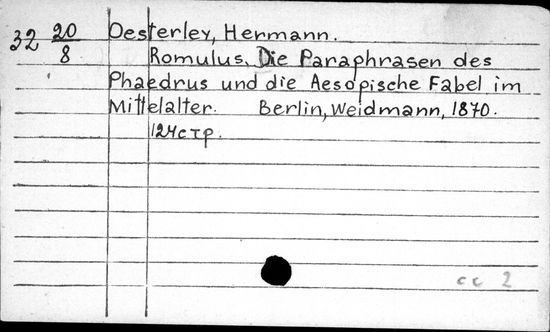 32 20/8 Oesterley, Hermann.
Romulus. Die Paraphrasen des
Phaedrus und die Aesopische Fabel im
Mittelalter. Berlin, Weidmann, 1870.
124 стр.
сс 2